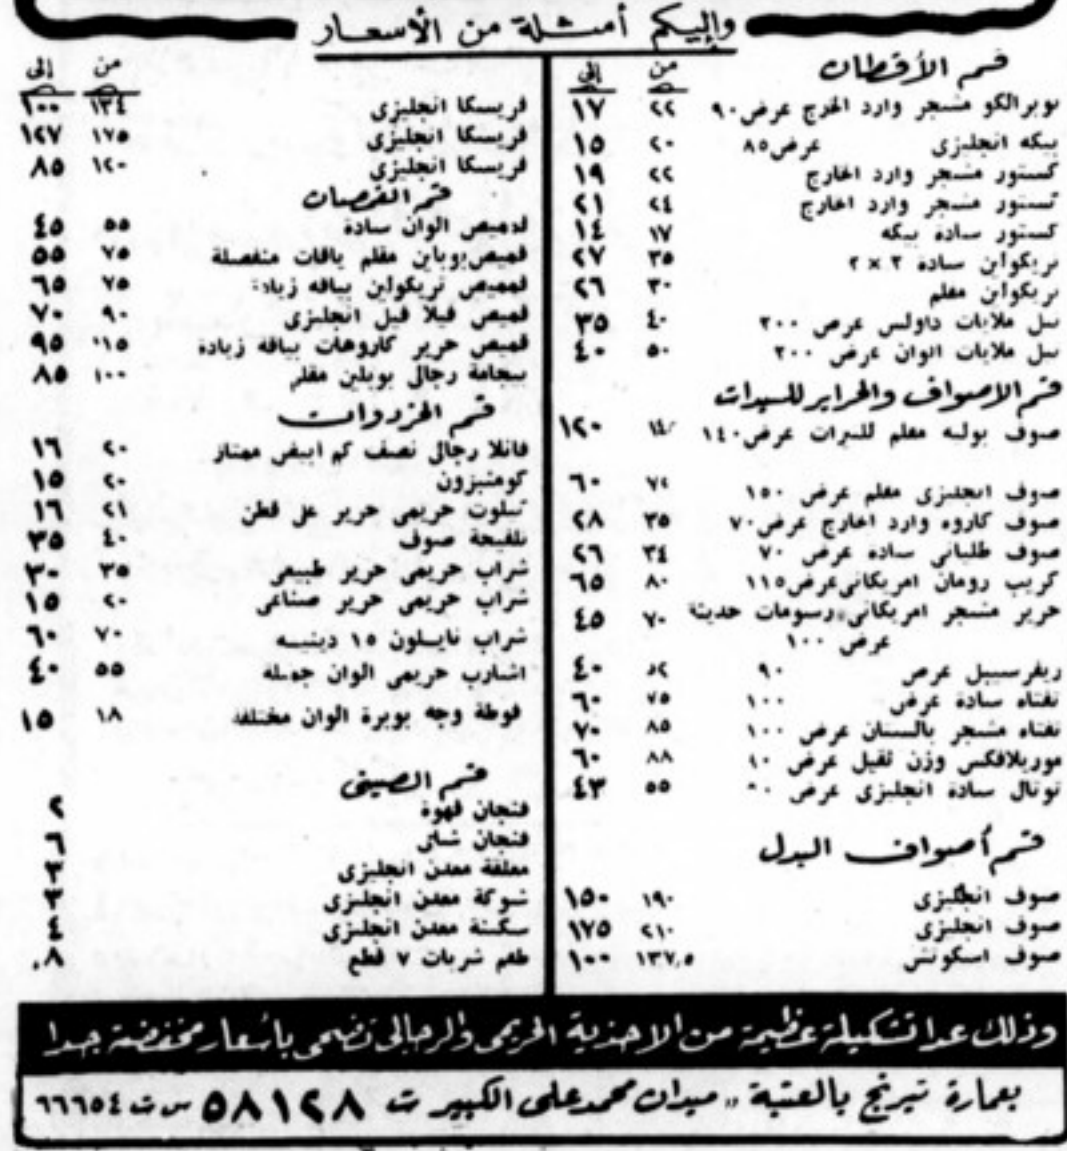 واليكم أمثلة من الأسعار
قسم الأقطان
من إلى
بوبرالكو مشجر وارد الخرج عرض ٩٠ ٢٢ ١٧
بيكه انجليزى عرض ٨٥ ٢٠ ١٥
كستور مشجر وارد الخارج ٢٢ ١٩
كستور مشجر وارد الخارج ٢٤ ٢١
كستور سادة بيكه ١٧ ١٤
تريكولين سادة ٢×٢ ٣٥ ٢٧
تريكولين مقلم ٣٠ ٢٦
تيل ملايات داولس عرض ٢٠٠ ٤٠ ٣٥
تيل ملايات الوان عرض ٢٠٠ ٥٠ ٤٠
قسم الاصواف والحراير للسيدات
صوف بوليه مقلم عرض ١٤٠ ١٢٠
صوف انجليزى مقلم عرض ١٥٠ ٧٢ ٦٠
صوف كاروه وارد الخارج عرض ٧٠ ٣٥ ٢٨
صوف طليانى سادة عرض ٧٠ ٣٤ ٢٦
كريب رومان امريكانى عرض ١١٥ ٨٠ ٦٥
حرير مشجر امريكانى رسومات حديثة ٧٠ ٤٥
عرض ١٠٠
ريفرسيبل عرض ٩٠ ٥٢ ٤٠
تفتاه سادة عرض ١٠٠ ٧٥ ٦٠
تفتاه مشجر بالستان عرض ١٠٠ ٨٥ ٧٠
موريلافكس وزن ثقيل عرض ٨٨ ٦٠
توتال سادة انجليزى عرض ٥٥ ٤٣
قسم أصواف البدل
صوف انجليزى ١٩٠ ١٥٠
صوف انجليزى ٢١٠ ١٧٥
صوف اسكوتش ١٣٧,٥ ١٠٠
من إلى
فريسكا انجليزى ١٣٤ ١٠٠
فريسكا انجليزى ١٧٥ ١٢٧
فريسكا انجليزى ١٢٠ ٨٥
قسم القمصان
قميص الوان سادة ٥٥ ٤٥
قميص بوبلين مقلم ياقات منفصلة ٧٥ ٥٥
قميص تريكولين بياقه زيادة ٧٥ ٦٥
قميص فيلا فيل انجليزى ٩٠ ٧٠
قميص حرير كاروهات بياقة زيادة ١١٥ ٩٥
بيجامة رجال بوبلين مقلم ١٠٠ ٨٥
قسم الخردوات
فانلا رجالى نصف كم ابيض ممتاز ٢٠ ١٦
كومبنيزون ٢٠ ١٥
كيلوت حريمى حرير على قطن ٢١ ١٦
تلفيحة صوف ٤٠ ٣٥
شراب حريمى حرير طبيعى ٣٥ ٣٠
شراب حريمى حرير صناعى ٢٠ ١٥
شراب نايلون ١٥ دينيه ٧٠ ٦٠
اشارب حريمى الوان جميلة ٥٥ ٤٠
فوطة وجه بوبرة الوان مختلفة ١٨ ١٥
قسم الصينى
فنجان قهوة ٢
فنجان شاى ٦
معلقة معدن انجليزى ٣
شوكة معدن انجليزى ٣
سكينة معدن انجليزى ٤
طقم شربات ٧ قطع ٨٠
وذلك عدا تشكيلة عظيمة من الاحذية الحريمى والرجالى تضحى بأسعار مخفضة جدا
بعمارة تيرنج بالعتبة ،، ميدان محمد على الكبير ت ٥٨١٢٨ س ت ٦٦٦٥٤